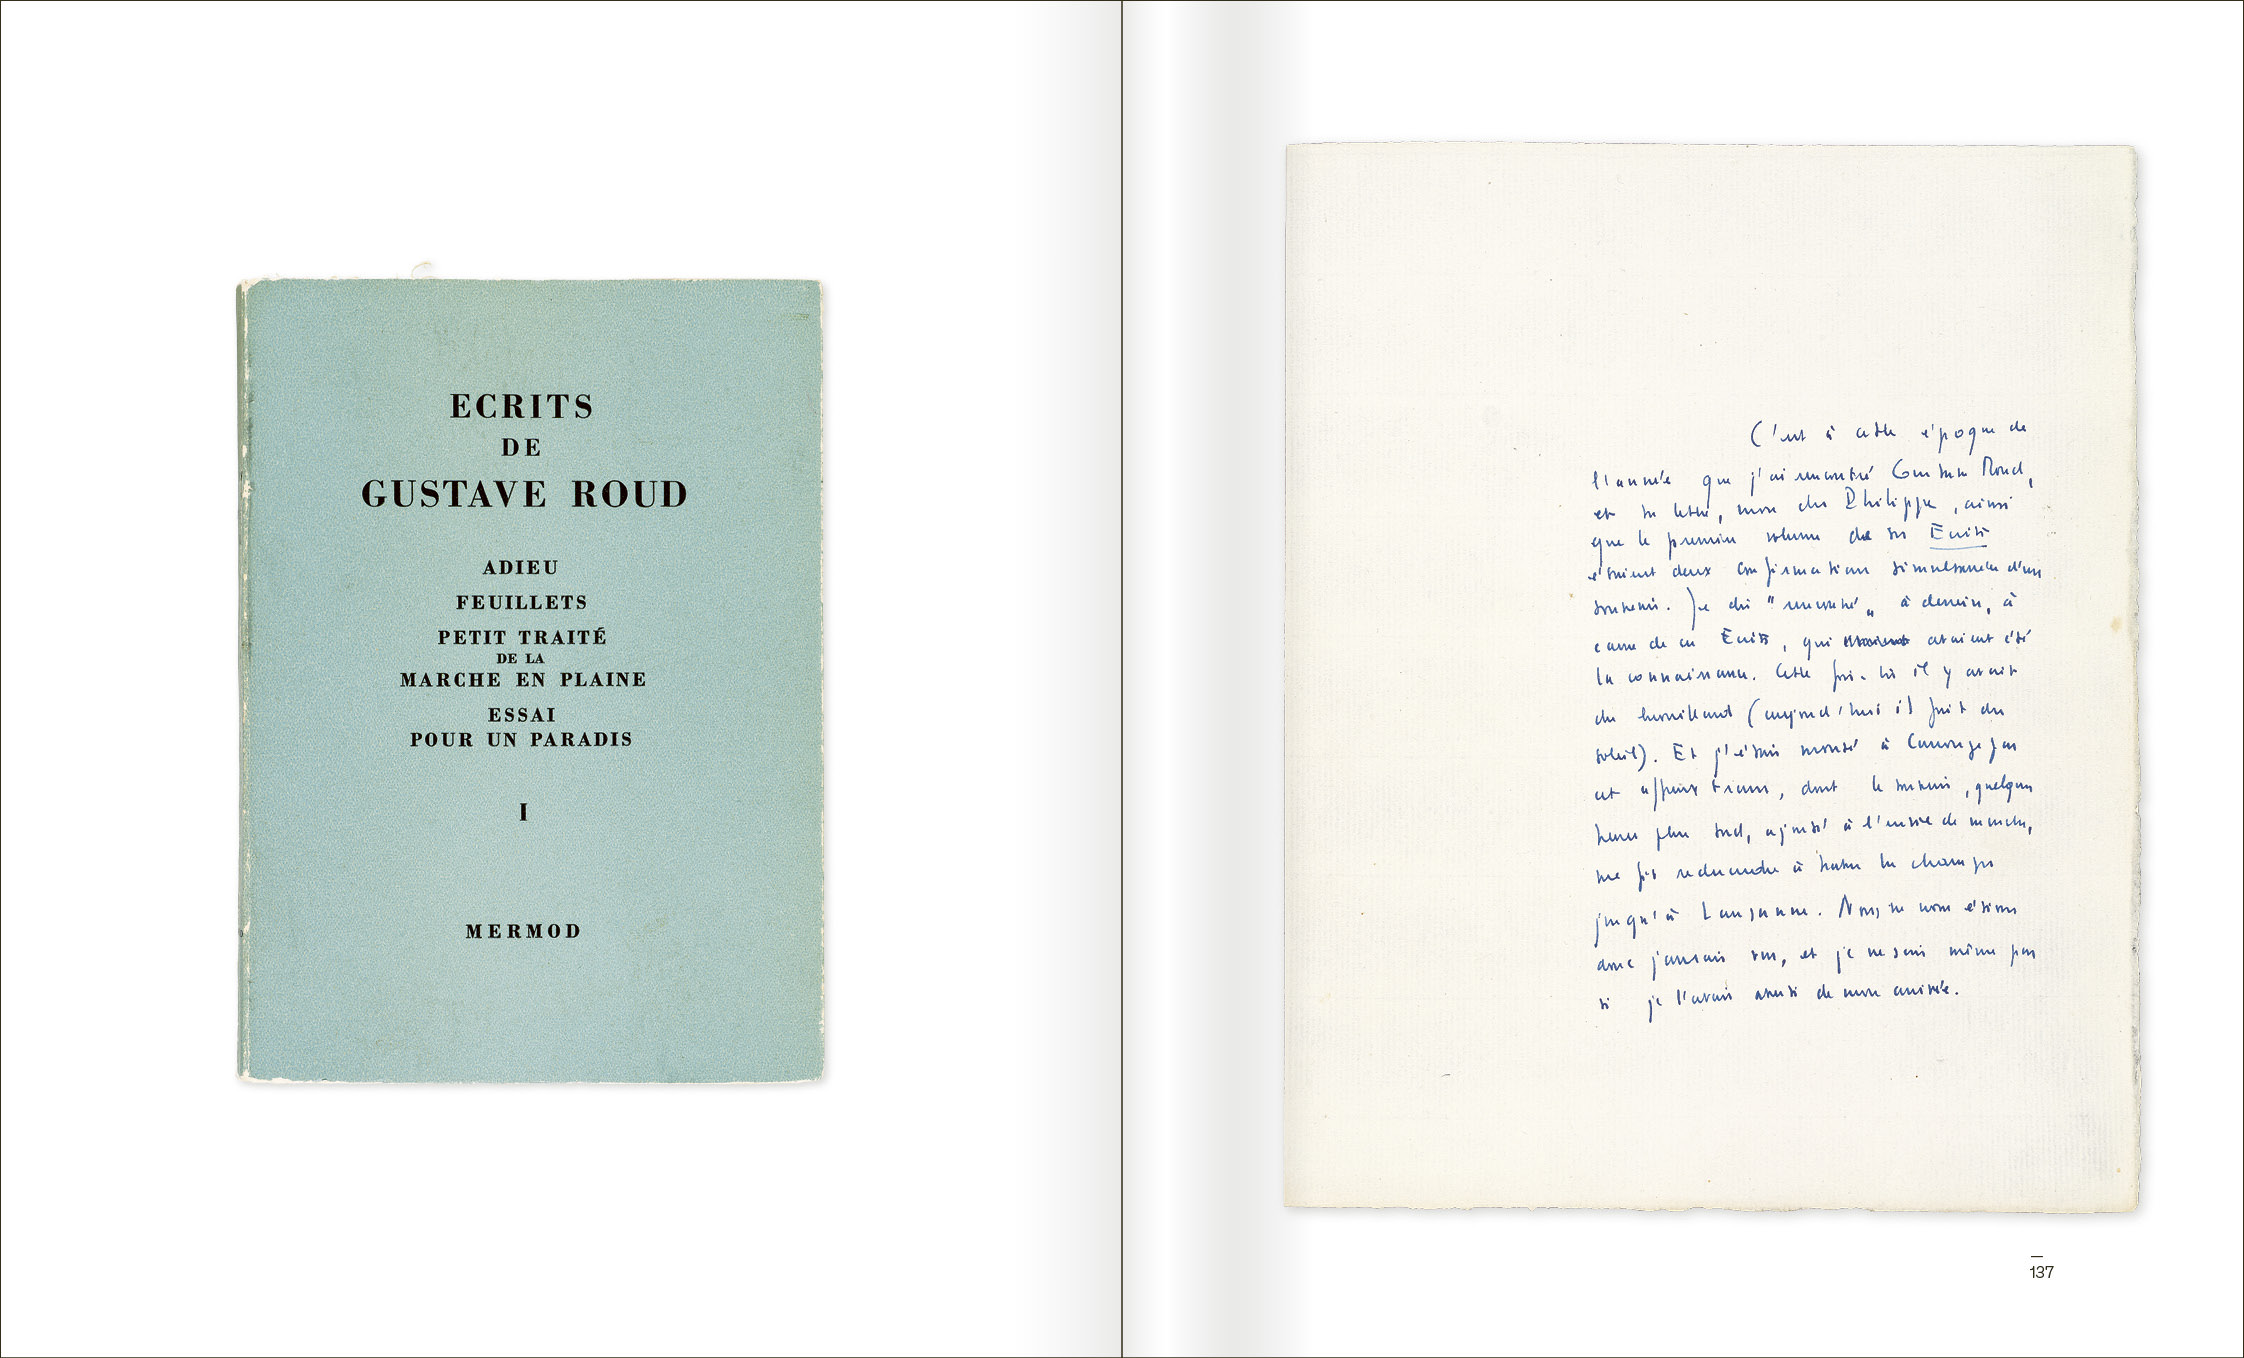 ECRITS
DE
GUSTAVE ROUD
ADIEU
FEUILLETS
PETIT TRAITÉ
DE LA
MARCHE EN PLAINE
ESSAI
POUR UN PARADIS
I
MERMOD
C'est à cette époque de
l'année que j'ai rencontré Gustave Roud,
et ta lettre, mon cher Philippe, ainsi
que le premier volume de ses Ecrits
étaient deux confirmations simultanées d'un
souvenir. Je dis "rencontré" à dessein, à
cause de ces Ecrits, qui avaient été
la connaissance. Cette fois-là il y avait
du brouillard (aujourd'hui il fait du
soleil). Et j'étais monté à Carrouge par
cet affreux tram, dont le souvenir, quelques
heures plus tard, ajouté à l'envie de marcher,
me fit redescendre à travers les champs
jusqu'à Lausanne. Nous ne nous étions
donc jamais vus, et je ne sais même pas
si je l'avais averti de mon arrivée.
137